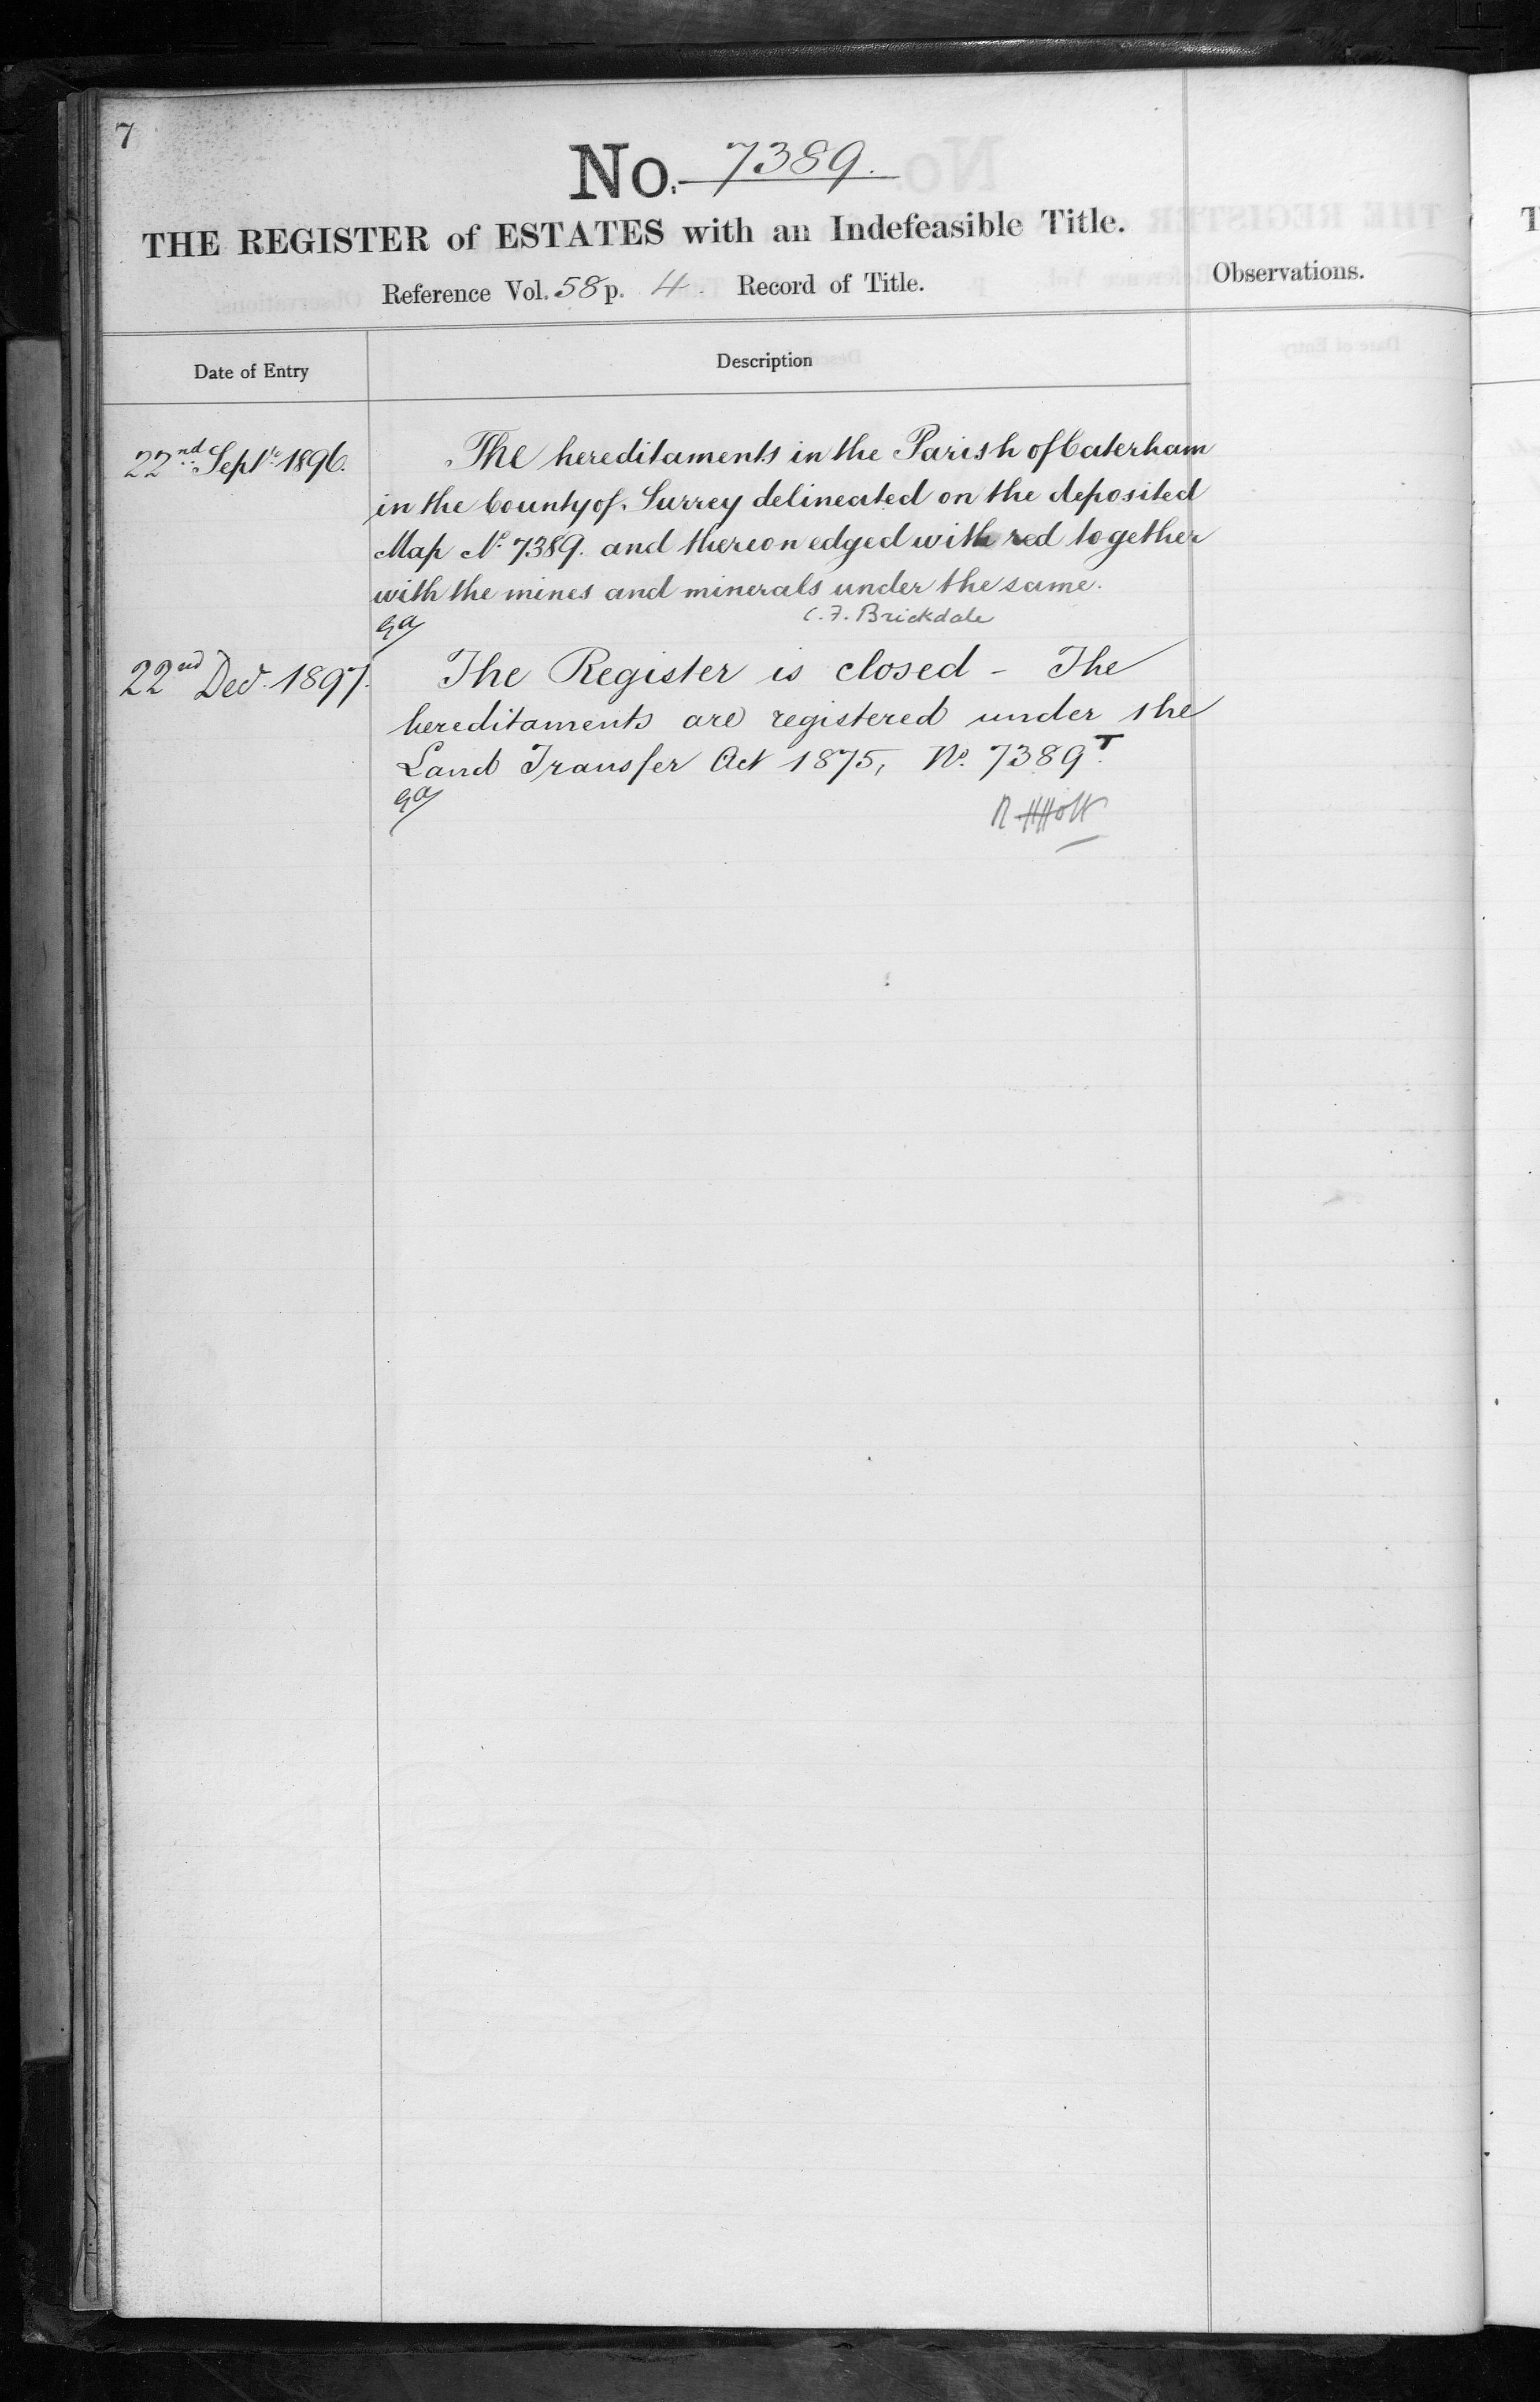 7
No. 7389.
THE REGISTER of ESTATES with an Indefeasible Title.
Reference Vol. 58 p. 4. Record of Title.
Observations.
Date of Entry
Description
22nd Septr 1896.
The hereditaments in the Parish of Caterham
in the County of Surrey delineated on the deposited
Map No 7389. and thereon edged with red together
with the mines and minerals under the same.
C. F. Brickdale
22nd Decr 1897.
The Register is closed - The
hereditaments are registered under the
Land Transfer Act 1875, No. 7389T.